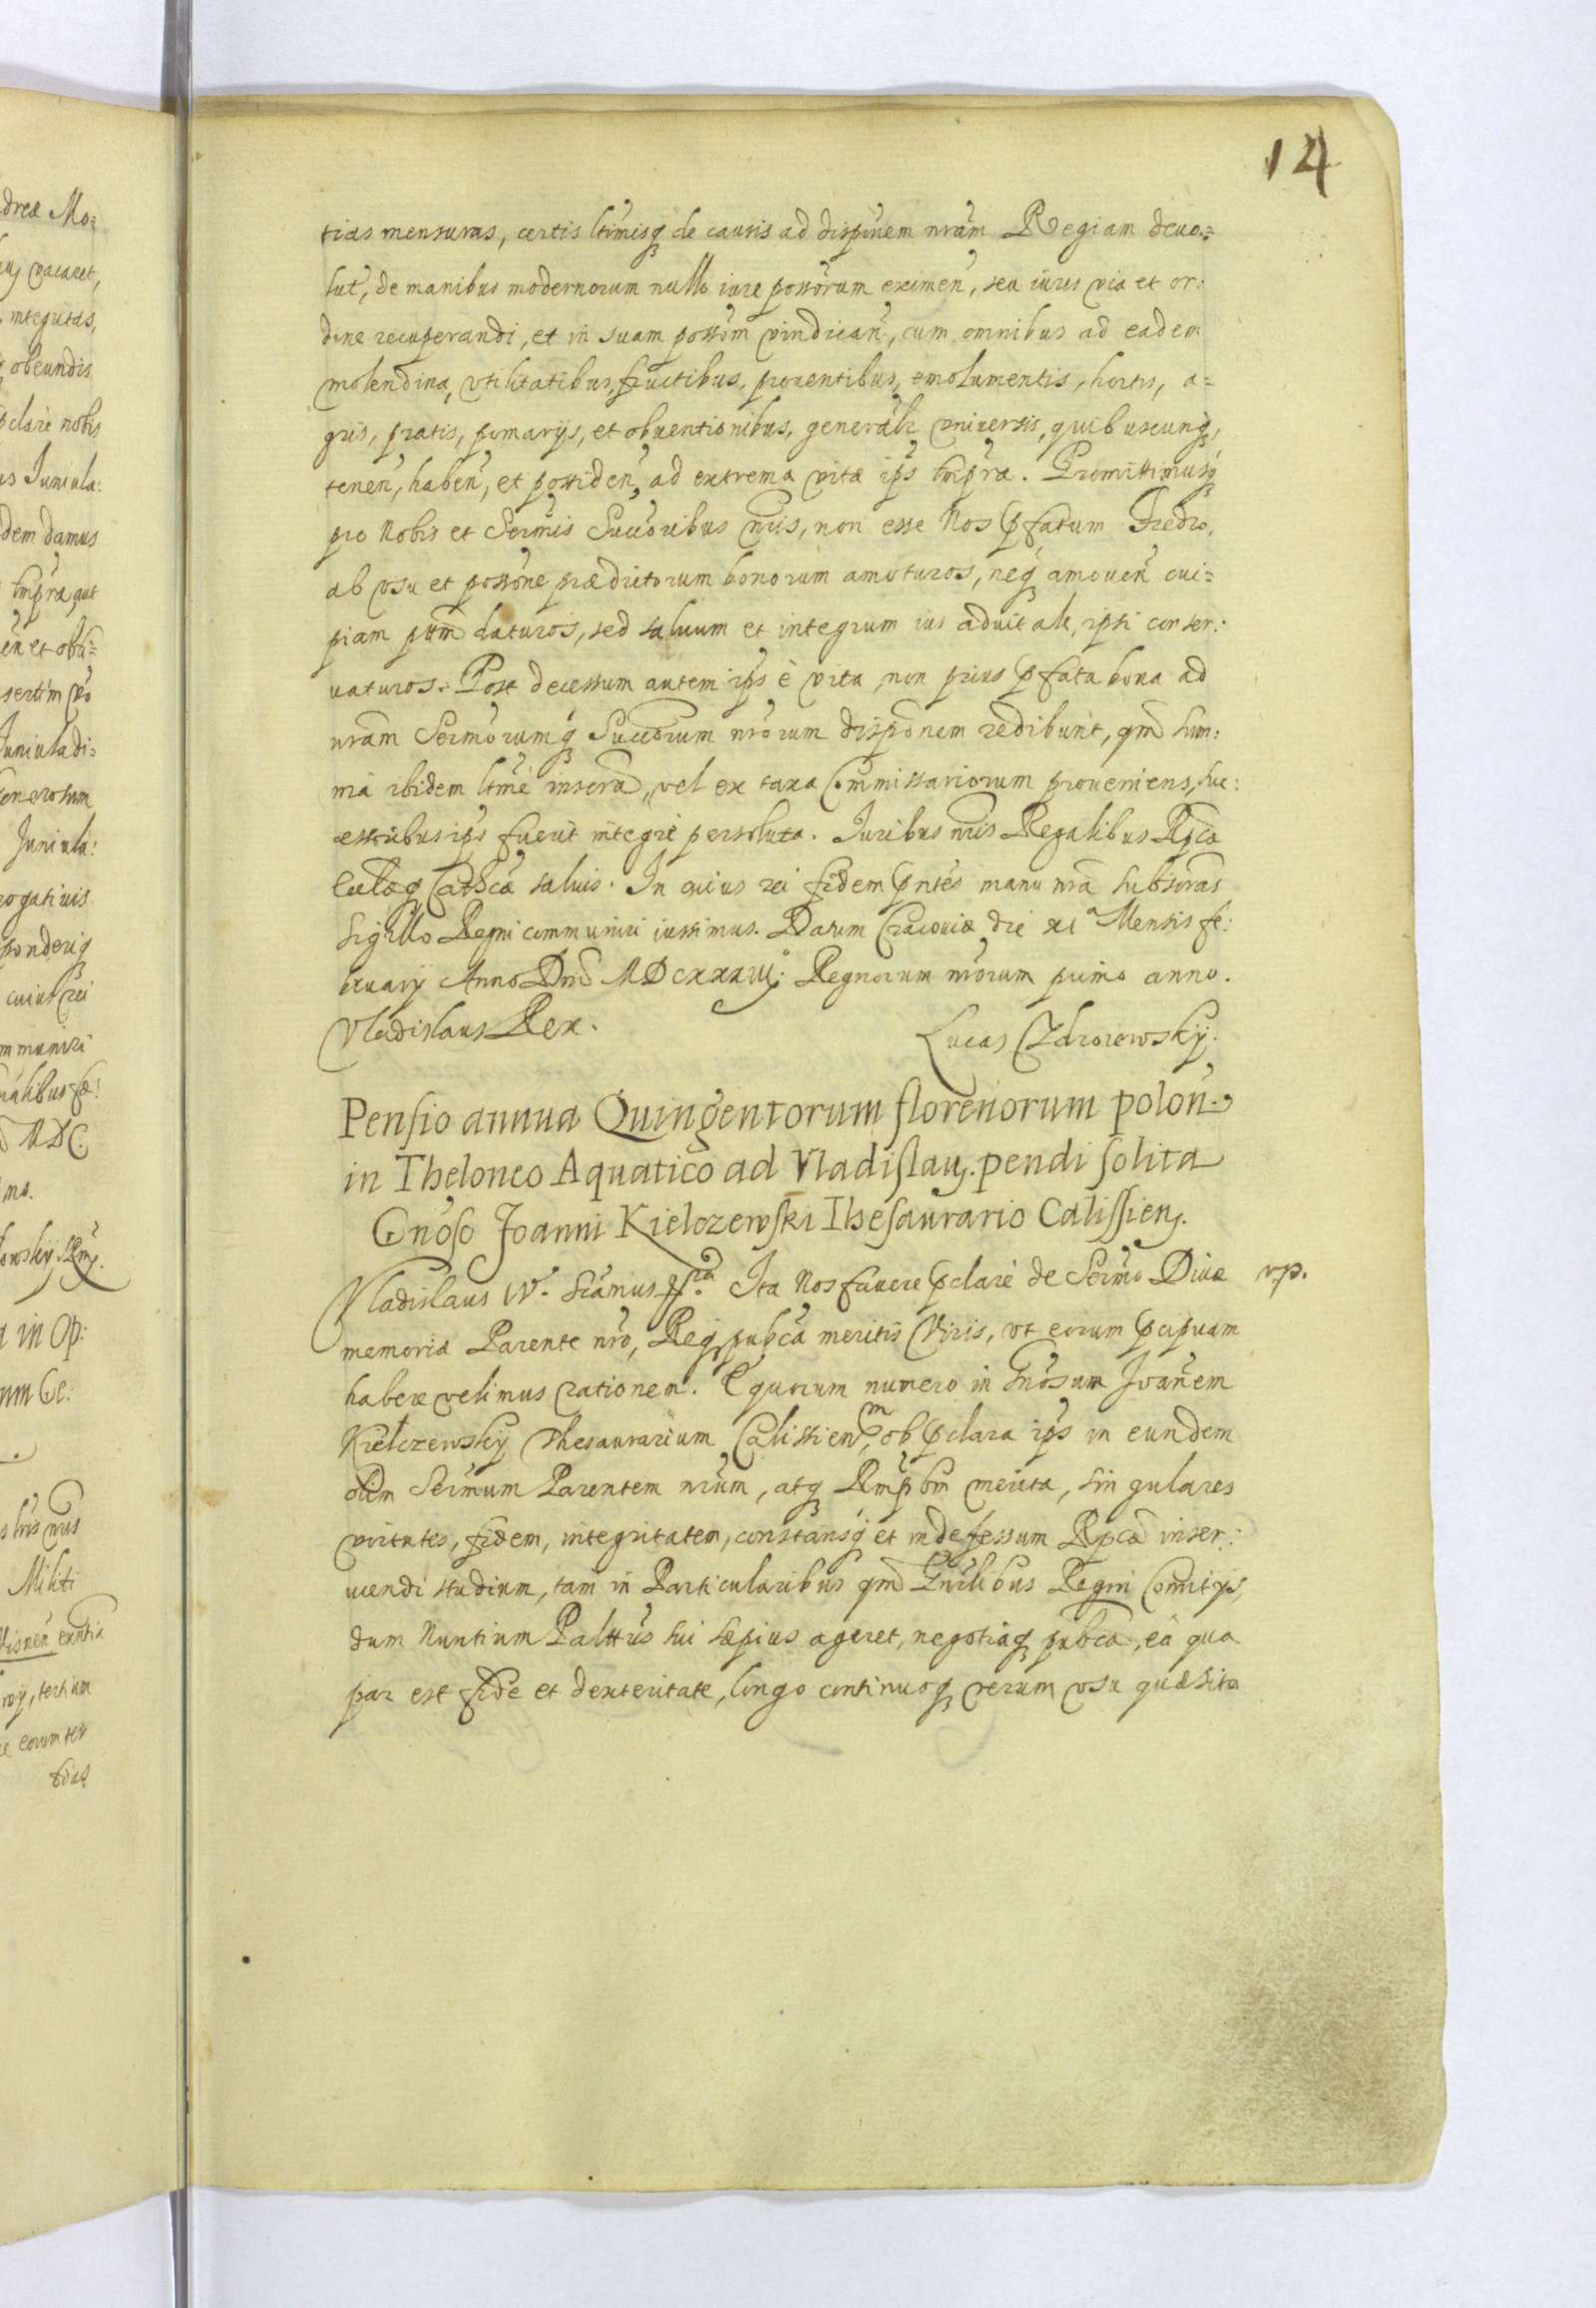 14
tias mensuras, certis ltimisq de causis ad dispnem nram Regiam deuo=
lut, de manibus modernorum nullo iure possorum eximen, seu iuris via et or:
dine recuperandi, et in suam possom vindican, cum omnibus ad eadem
molendina, vtilitatibus, fructibus, prouentibus, emolumentis, hortis, a=
gris, pratis, pomarijs, et obuentionibus, generalr vniuersis, quibuscunq,
tenen, haben, et possiden, ad extrema vitæ ips tmpra. Promittimusq
pro Nobis et Sermis Succoribus nris, non esse Nos pfatum Fredro,
ab vsu et possone prædictorum bonorum amoturos, neq amouen cui=
piam pttm daturos, sed saluum et integrum ius aduitale, ipsi conser:
uaturos. Post decessum autem ips è vita, non prius pfata bona ad
nram Sermorumq Succorum nrorum disponem redibunt, qm sum:
ma ibidem ltme inscra, vel ex taxa Commissariorum proueniens, suc:
essoribus ips fuerit integrè persoluta. Iuribus nris Regalibus Rpcæ
Eccliæq Cathcæ saluis. In cuius rei fidem pntes manu nra subscras
Sigillo Regni communiri iussimus. Datum Cracouiæ die XI a Mensis fe:
bruarij Anno Dni MDCXXXIII. Regnorum nrorum primo anno.
Vladislaus Rex.
Lucas Zdrorewskij.
Pensio annua Quingentorum florenorum polon.
in Theloneo Aquatico ad Vladislauj. pendi solita
Gnoso Joanni Kielczewski Thesaurario Calissienj.
Vladislaus IV. Sicamus Ita Nos fauere pclarè de Sermo Diuæ
vp.
memoriæ Parente nro, Reqpubca meritis Viris, vt eorum pcipuam
habere velimus rationem. E quorum numero in Gnosum Joanem
Kielczewskij Thesaurarium Calissien m, ob pclara ips in eundem
olim Sermum Parentem nrum, atq Rmpbm merita, singulares
virtutes, fidem, integritatem, constansq et indefessum Rpcæ inser:
uiendi studium, tam in Particularibus qm Gnrlibus Regni Comitijs,
dum Nuntium Palttus sui sæpius ageret, negotiaq pubca, eà qua
par est fide et dexteritate, longo continuoq rerum vsu quæsita